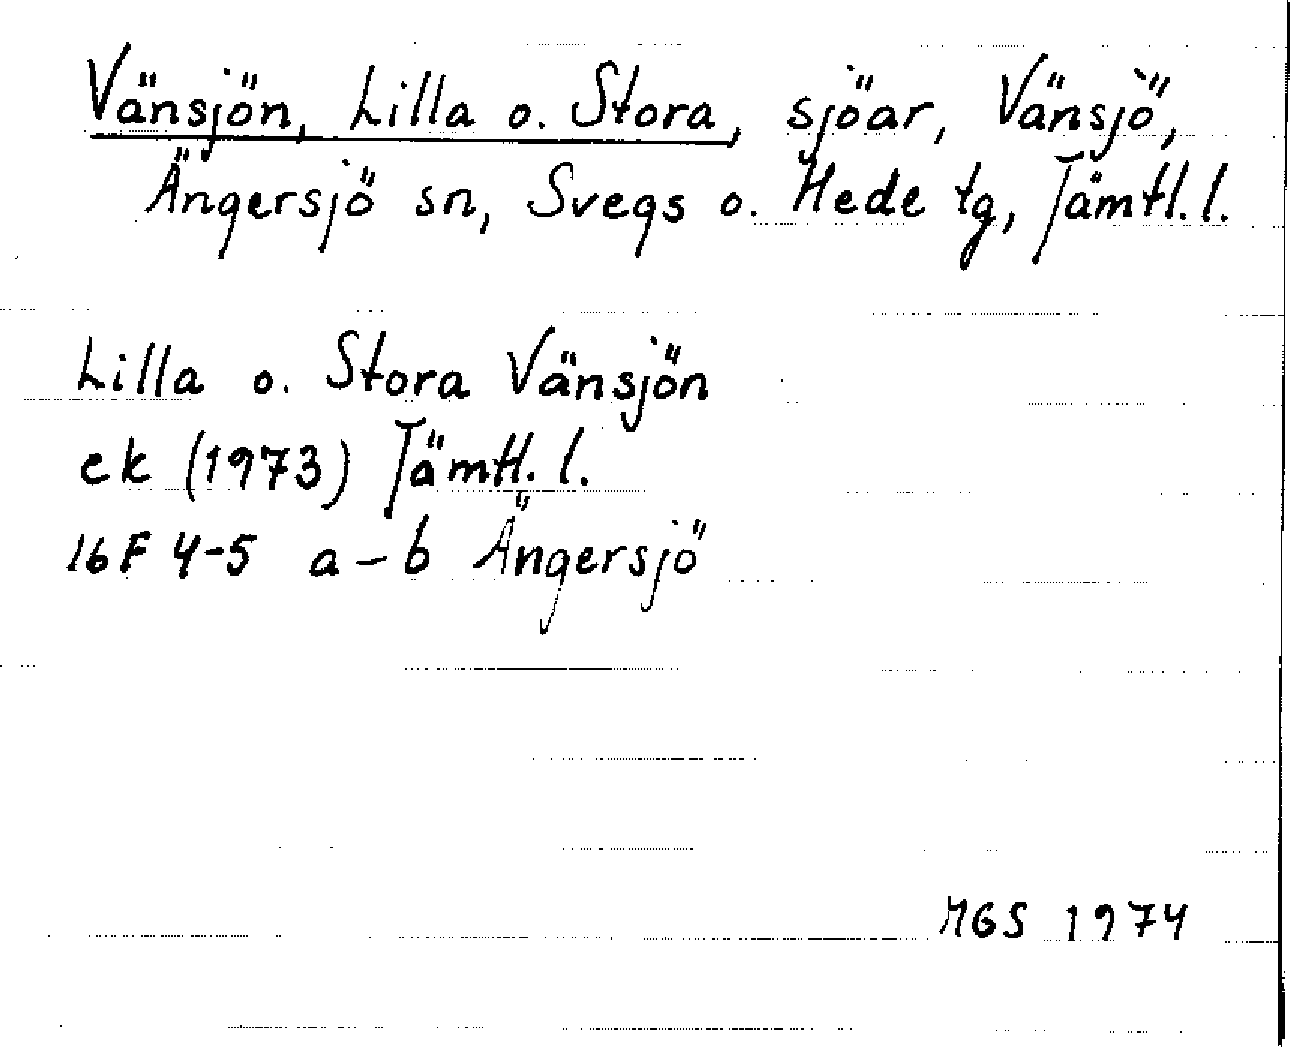 Vänsjön, Lilla o. Stora, sjöar, Vänsjö,
Ängersjö sn, Svegs o. Hede tg, Jämtl. l.
Lilla o. Stora Vänsjön
ek (1973) Jämtl. l.
16F 4-5 a-b Ängersjö
MGS 1974